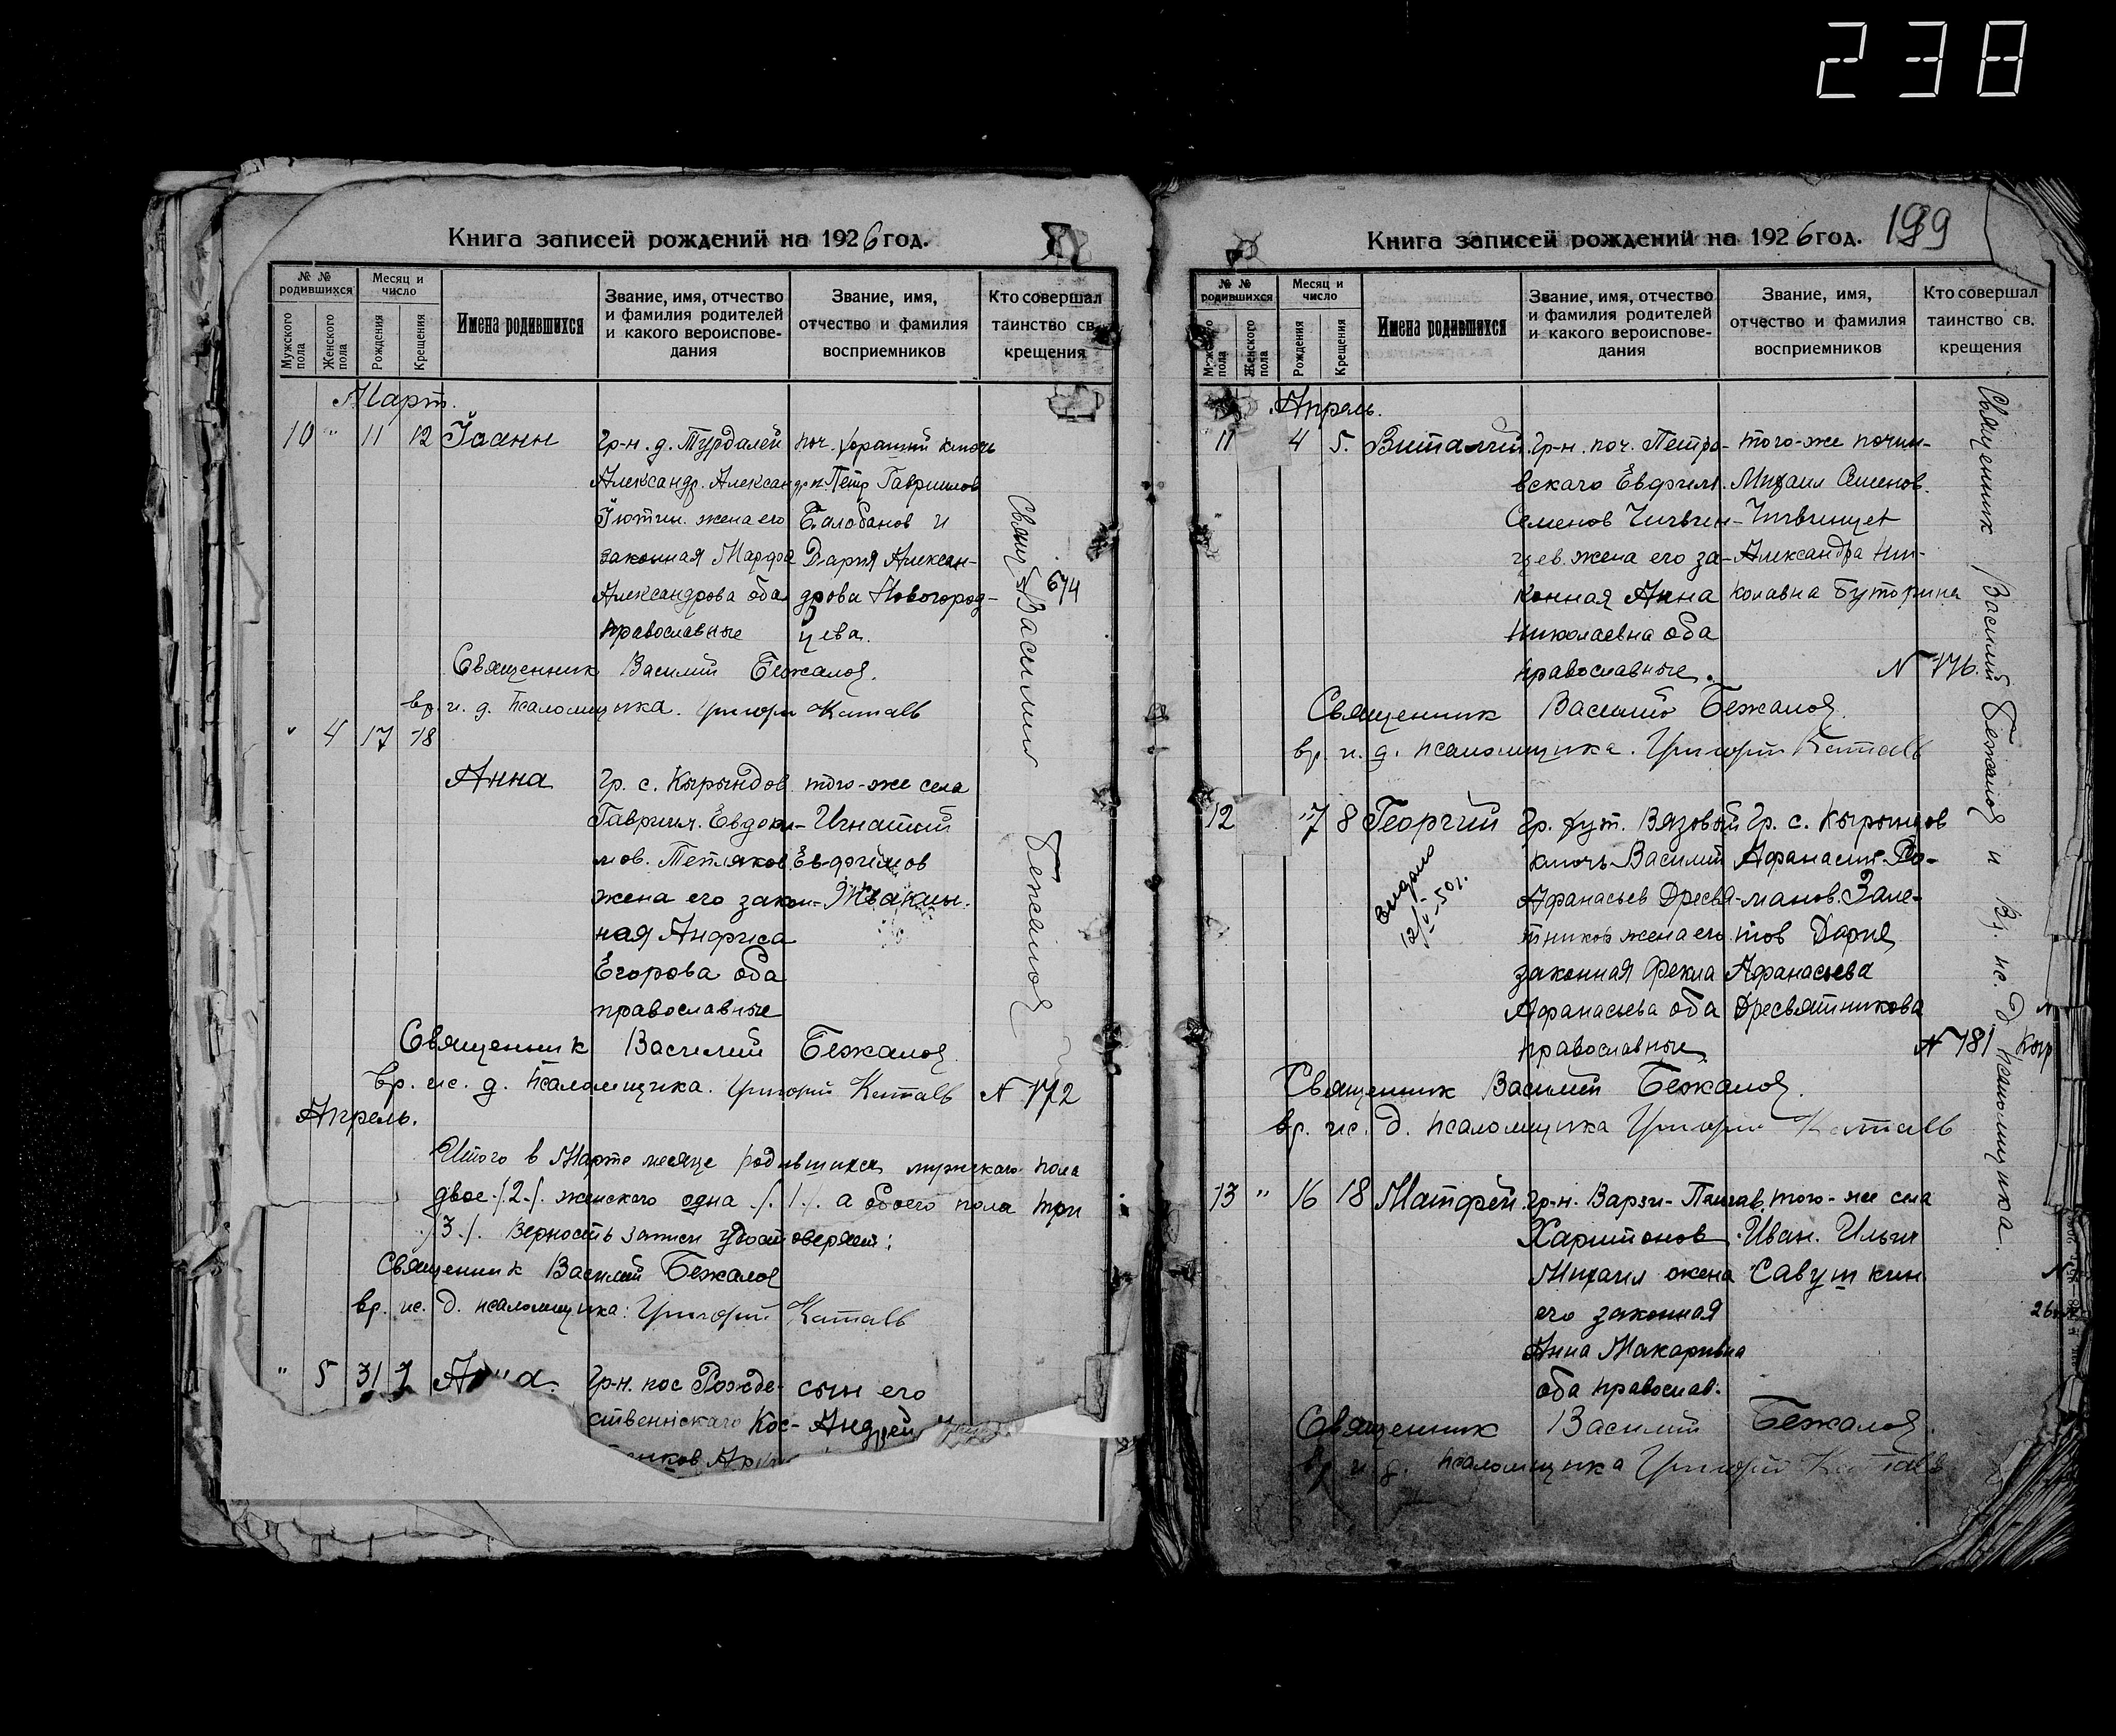 238
Книга записей рождений на 1926 год.
№ № родившихся
Мужского пола
Женского пола
Месяц и число
Рождения
Крещения
Имена родившихся
Звание, имя, отчество и фамилия родителей и какого вероисповедания
Звание, имя, отчество и фамилия восприемников
Кто совершал таинство св. крещения
Март.
10 " 11 12 Іоанн
Гр-н. д. Турдалей
Александр. Алексан
жена его
законная Марфа
Александрова оба
православные
поч. ключь
Петр Гаврилов
Балобанов и
Дария Алексан-
дрова Новогород-
цева.
674
Священник Василий Бежалов.
вр. и. д. псаломщика. Григори
" 4 17 18
Анна
Гр. с. Кырындов
Гавриил. Евдоки-
мов. Петляков.
жена его закон-
ная Анфиса
Егорова оба
православные
того-же села
Игнатий
Евфимов
Священник Василий Бежалов.
вр. ис. д. псаломщика. Григорий
N 172
Апрель.
Итого в Марте месяце родившихся мужскаго пола
двое /2/. женского одна /1/. а обоего пола три
/3/. Верность записи удостоверяем:
Священник Василий Бежалов
вр. ис. д. псаломщика: Григорий
" 5 31
Гр-н. пос Рожде-
ственскаго Кос-
сын его
Андрей
Василий Бежалов
Книга записей рождений на 1926 год.
199
№ № родившихся
Мужского пола
Женского пола
Месяц и число
Рождения
Крещения
Имена родившихся
Звание, имя, отчество и фамилия родителей и какого вероисповедания
Звание, имя, отчество и фамилия восприемников
Кто совершал таинство св. крещения
Апрель.
11 4 5. Виталий.
Гр-н. поч. Петро-
вскаго Евфим.
Семенов Чигвин-
цев. жена его за-
конная Анна
Николаевна оба
православные.
того-же почин-
Михаил Семенов.
Чигвинцев
Александра Ни-
колавна Буторина
N 176.
Священник Василий Бежалов.
вр. и. д. псаломщика. Григорий
12 7 8 Георгий
Выдано
12/V-50г.
Гр. хут. Вязовый
ключь Василий
Афанасьев Дресвя-
тников жена его
законная Фекла
Афанасьева оба
православные
Гр. с. Кырындов
Афанасий Ро-
манов. Зале-
тов Дария
Афанасьева
Дресвятникова
N 181
Священник Василий Бежалов.
вр. ис. д. псаломщика Григорий
13 " 16 18 Матфей.
Гр-н. Варзи-
Харитонов
Михаил жена
его законная
Анна Макаровна
оба православ.
того-же села
Иван. Ильин
Савушкин
Священник Василий Бежалов.
вр и д. псаломщика Григорий
Священник Василий Бежалов и вр. ис. д псаломщика.